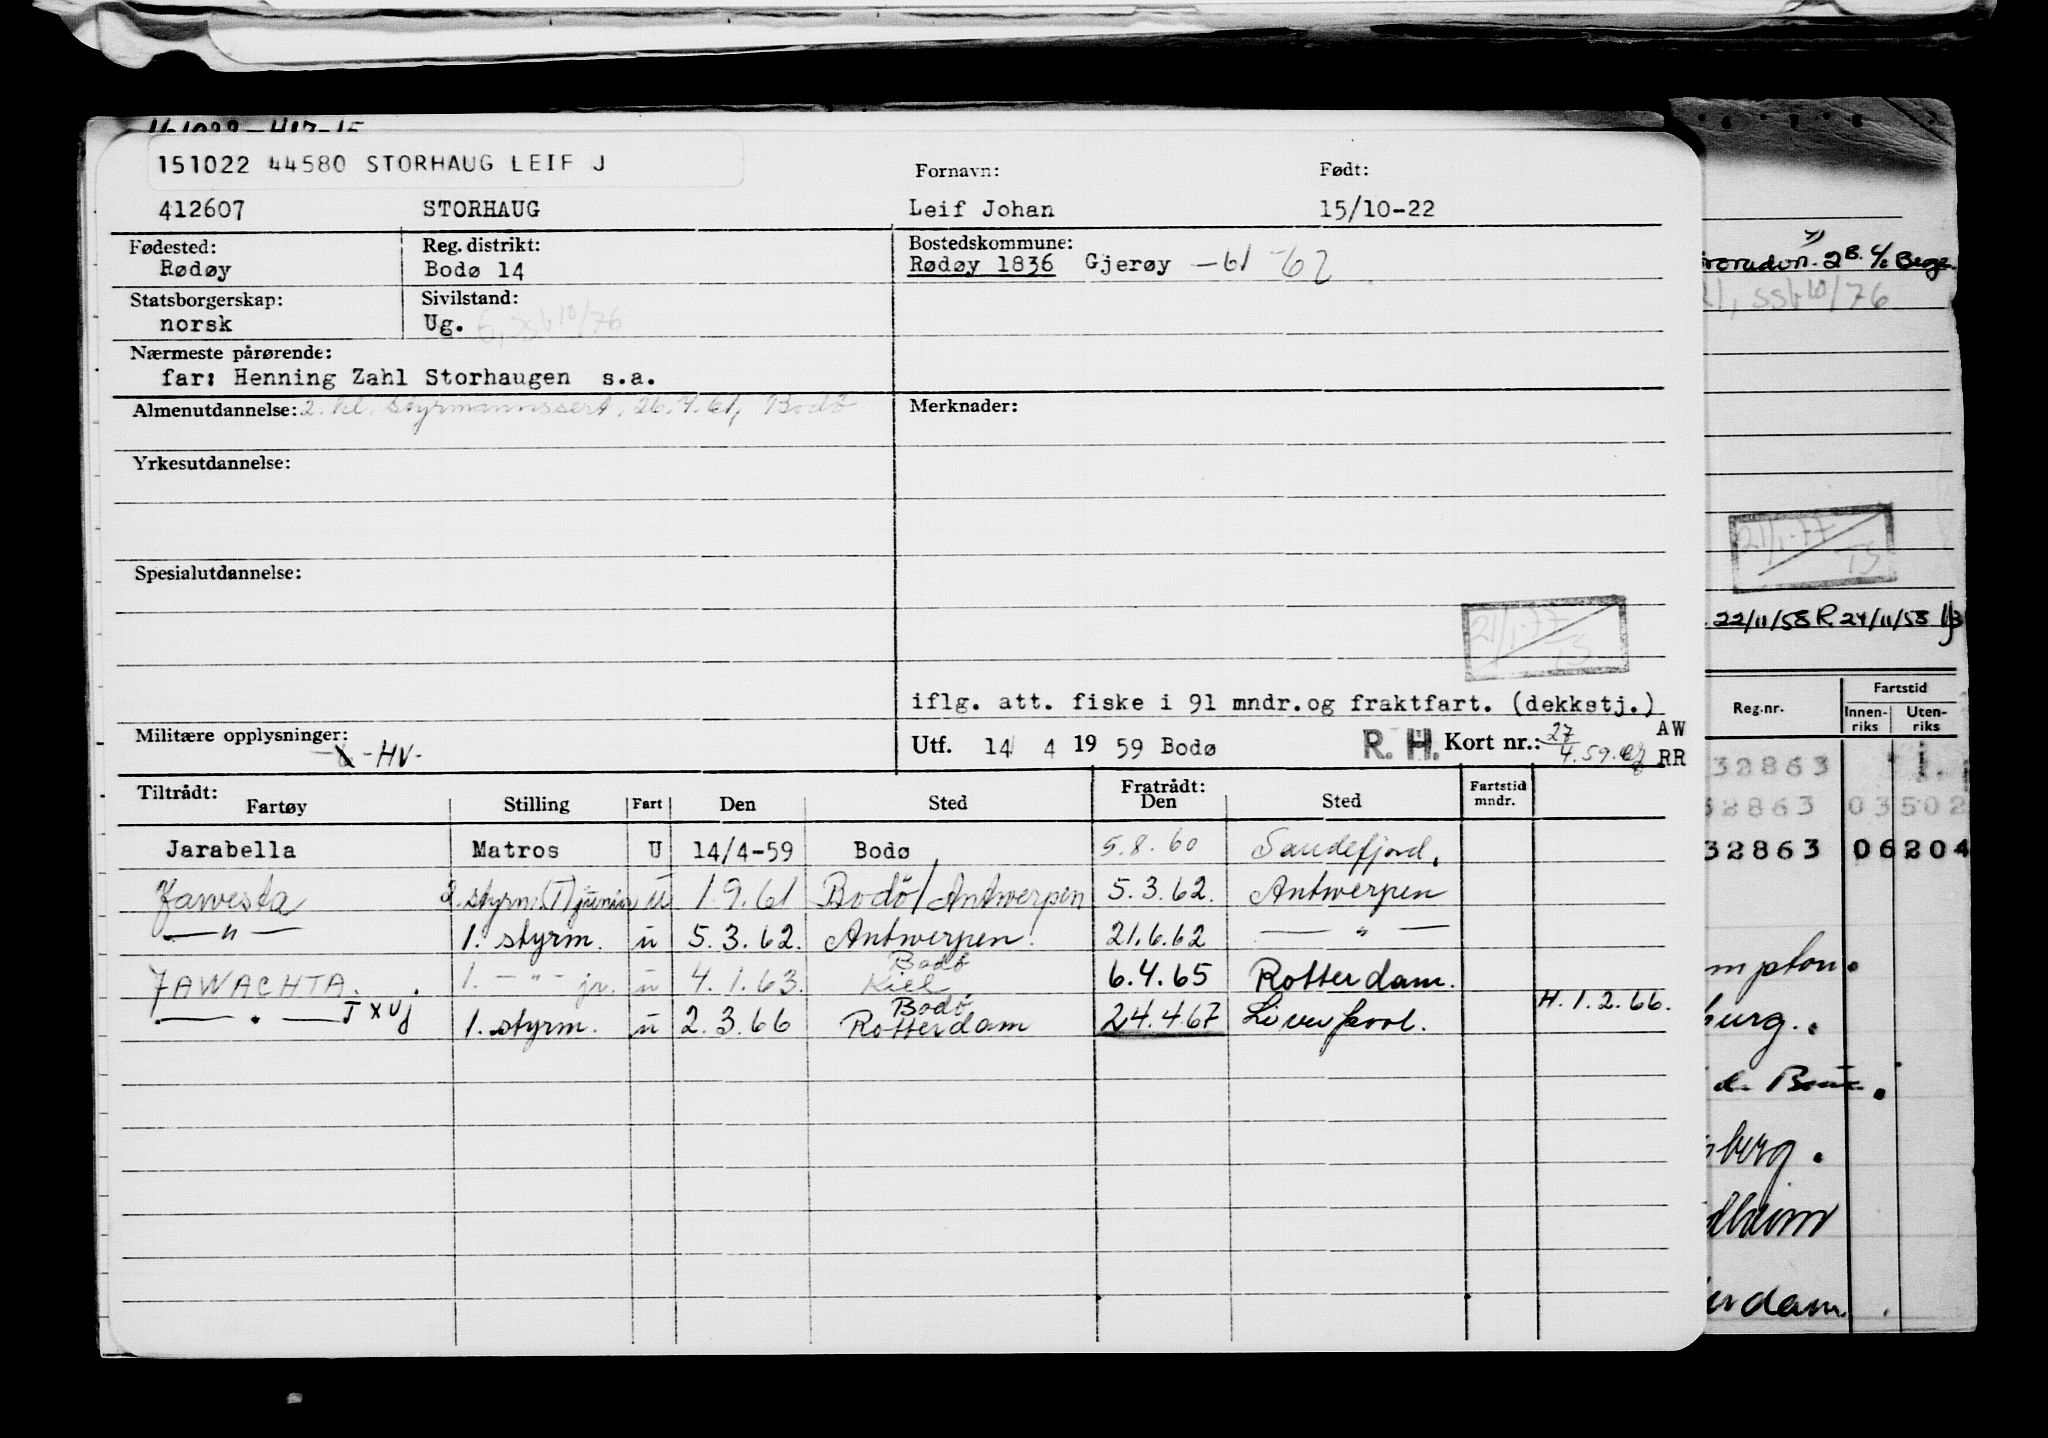 151022 44580 STORHAUG LEIF J
Fornavn: Født:
412607 STORHAUG Leif Johan 15/10-22
Fødested: Reg. distrikt: Bostedskommune:
Rødøy Bodø 14 Rødøy 1836 Gjerøy -61 -62
Statsborgerskap: Sivilstand:
norsk Ug.
Nærmeste pårørende:
far: Henning Zahl Storhaugen s.a.
Almenutdannelse: 2. kl. styrmannssert. 26.4.61, Bodø Merknader:
Yrkesutdannelse:
Spesialutdannelse:
21/1-77
TS
iflg. att. fiske i 91 mndr.og fraktfart. (dekkstj.)
Militære opplysninger: -HV-
Utf. 14 4 19 59 Bodø R. H. Kort nr.: 27/4.59. AW
RR
Tiltrådt: Fratrådt: Fartstid
Fartøy Stilling Fart Den Sted Den Sted mndr.
Jarabella Matros U 14/4-59 Bodø 5.8.60 Sandefjord.
Jawesta 2. styrm.(T)junior u 1.9.61 Bodø/Antwerpen 5.3.62. Antwerpen
— " — 1. styrm. u 5.3.62. Antwerpen. 21.6.62 — " —
Bodø
JAWACHTA. 1. - " - jr. u 4.1.63. Kiel 6.4.65 Rotterdam.
Bodø H. 1.2.66.
— " — TXUJ 1. styrm. u 2.3.66 Rotterdam 24.4.67 Liverpool.
2B. c/o Berge
ssb 10/76
21/1-77
TS
22/11/58 R 24/11/58
Reg.nr. Fartstid
Innen-riks Uten-riks
32863 1.
32863 03502
32863 06204
mpton.
burg.
de
berg.
dheim
erdam.